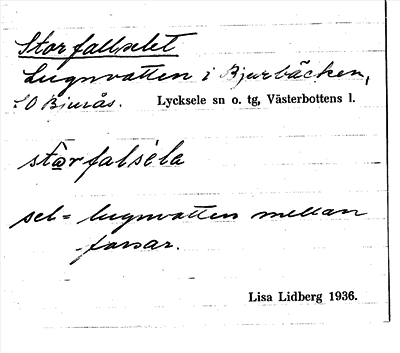 Storfallselet
Lugnvatten i Bjurbäcken,
S.O Bjurås. Lycksele sn o. tg, Västerbottens l.
sel = lugnvatten mellan
forsar.
Lisa Lidberg 1936.